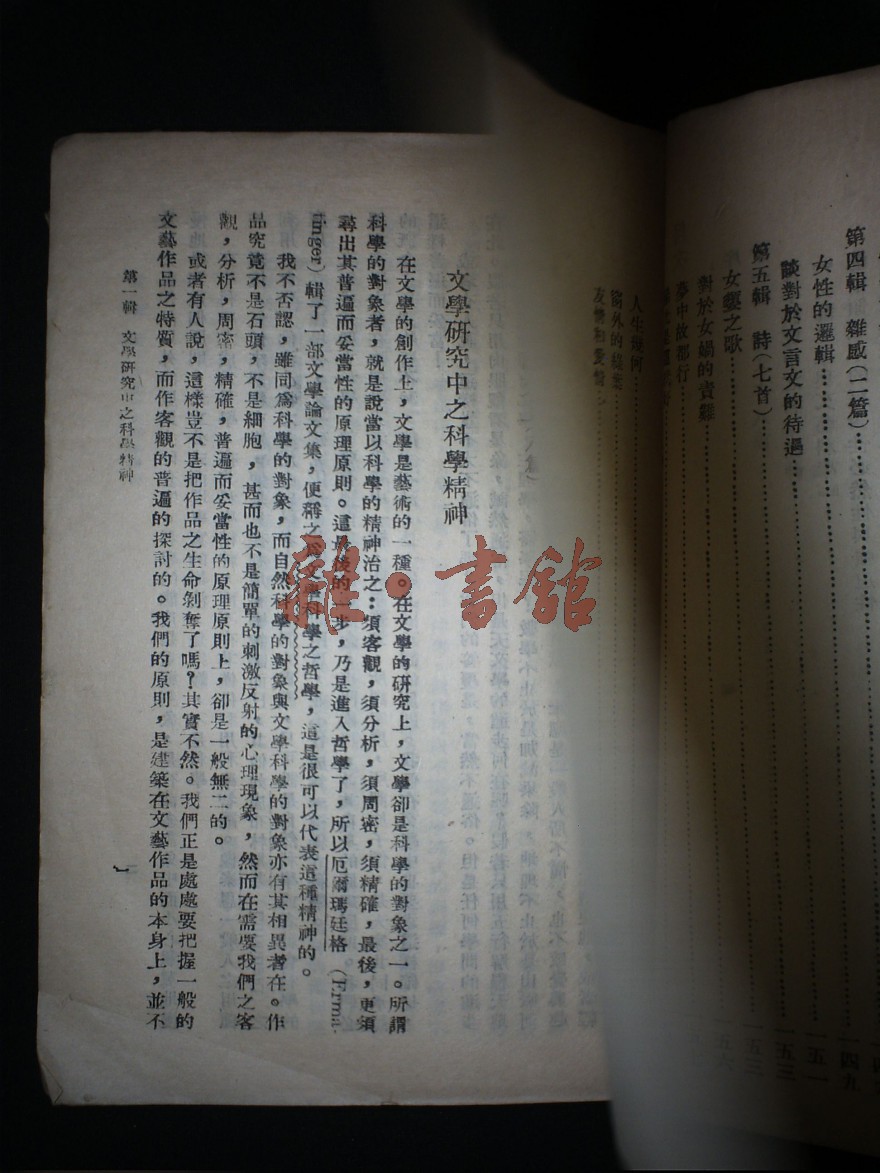 第四輯 雜感(二篇)……一四九
女性的邏輯……一五一
談對於文言文的待遇……一五三
第五輯 詩(七首)……
女嬰之歌……
對於女媧的責難
夢中故都行
人生幾何
窗外的
友情和愛情
文學研究中之科學精神
在文學的創作上,文學是藝術的一種。在文學的研究上,文學卻是科學的對象之一。所謂
科學的對象者,就是說當以科學的精神治之:須客觀,須分析,須周密,須精確,最後,更須
尋出其普遍而妥當性的原理原則。這最後的一步,乃是進入哲學了,所以厄爾瑪廷格。(Erma-
tinger)輯了一部文學論文集,便稱之為文學科學之哲學,這是很可以代表這種精神的。
我不否認,雖同爲科學的對象,而自然科學的對象與文學科學的對象亦有其相異者在。作
品究竟不是石頭,不是細胞,甚而也不是簡單的刺激反射的心理現象,然而在需要我們之客
觀,分析,周密,精確,普遍而妥當性的原理原則上,卻是一般無二的。
或者有人說,這樣豈不是把作品之生命剝奪了嗎?其實不然。我們正是處處要把握一般的
文藝作品之特質,而作客觀的普遍的探討的。我們的原則,是建築在文藝作品的本身上,並不
第一輯 文學研究中之科學精神
一
雜·書館